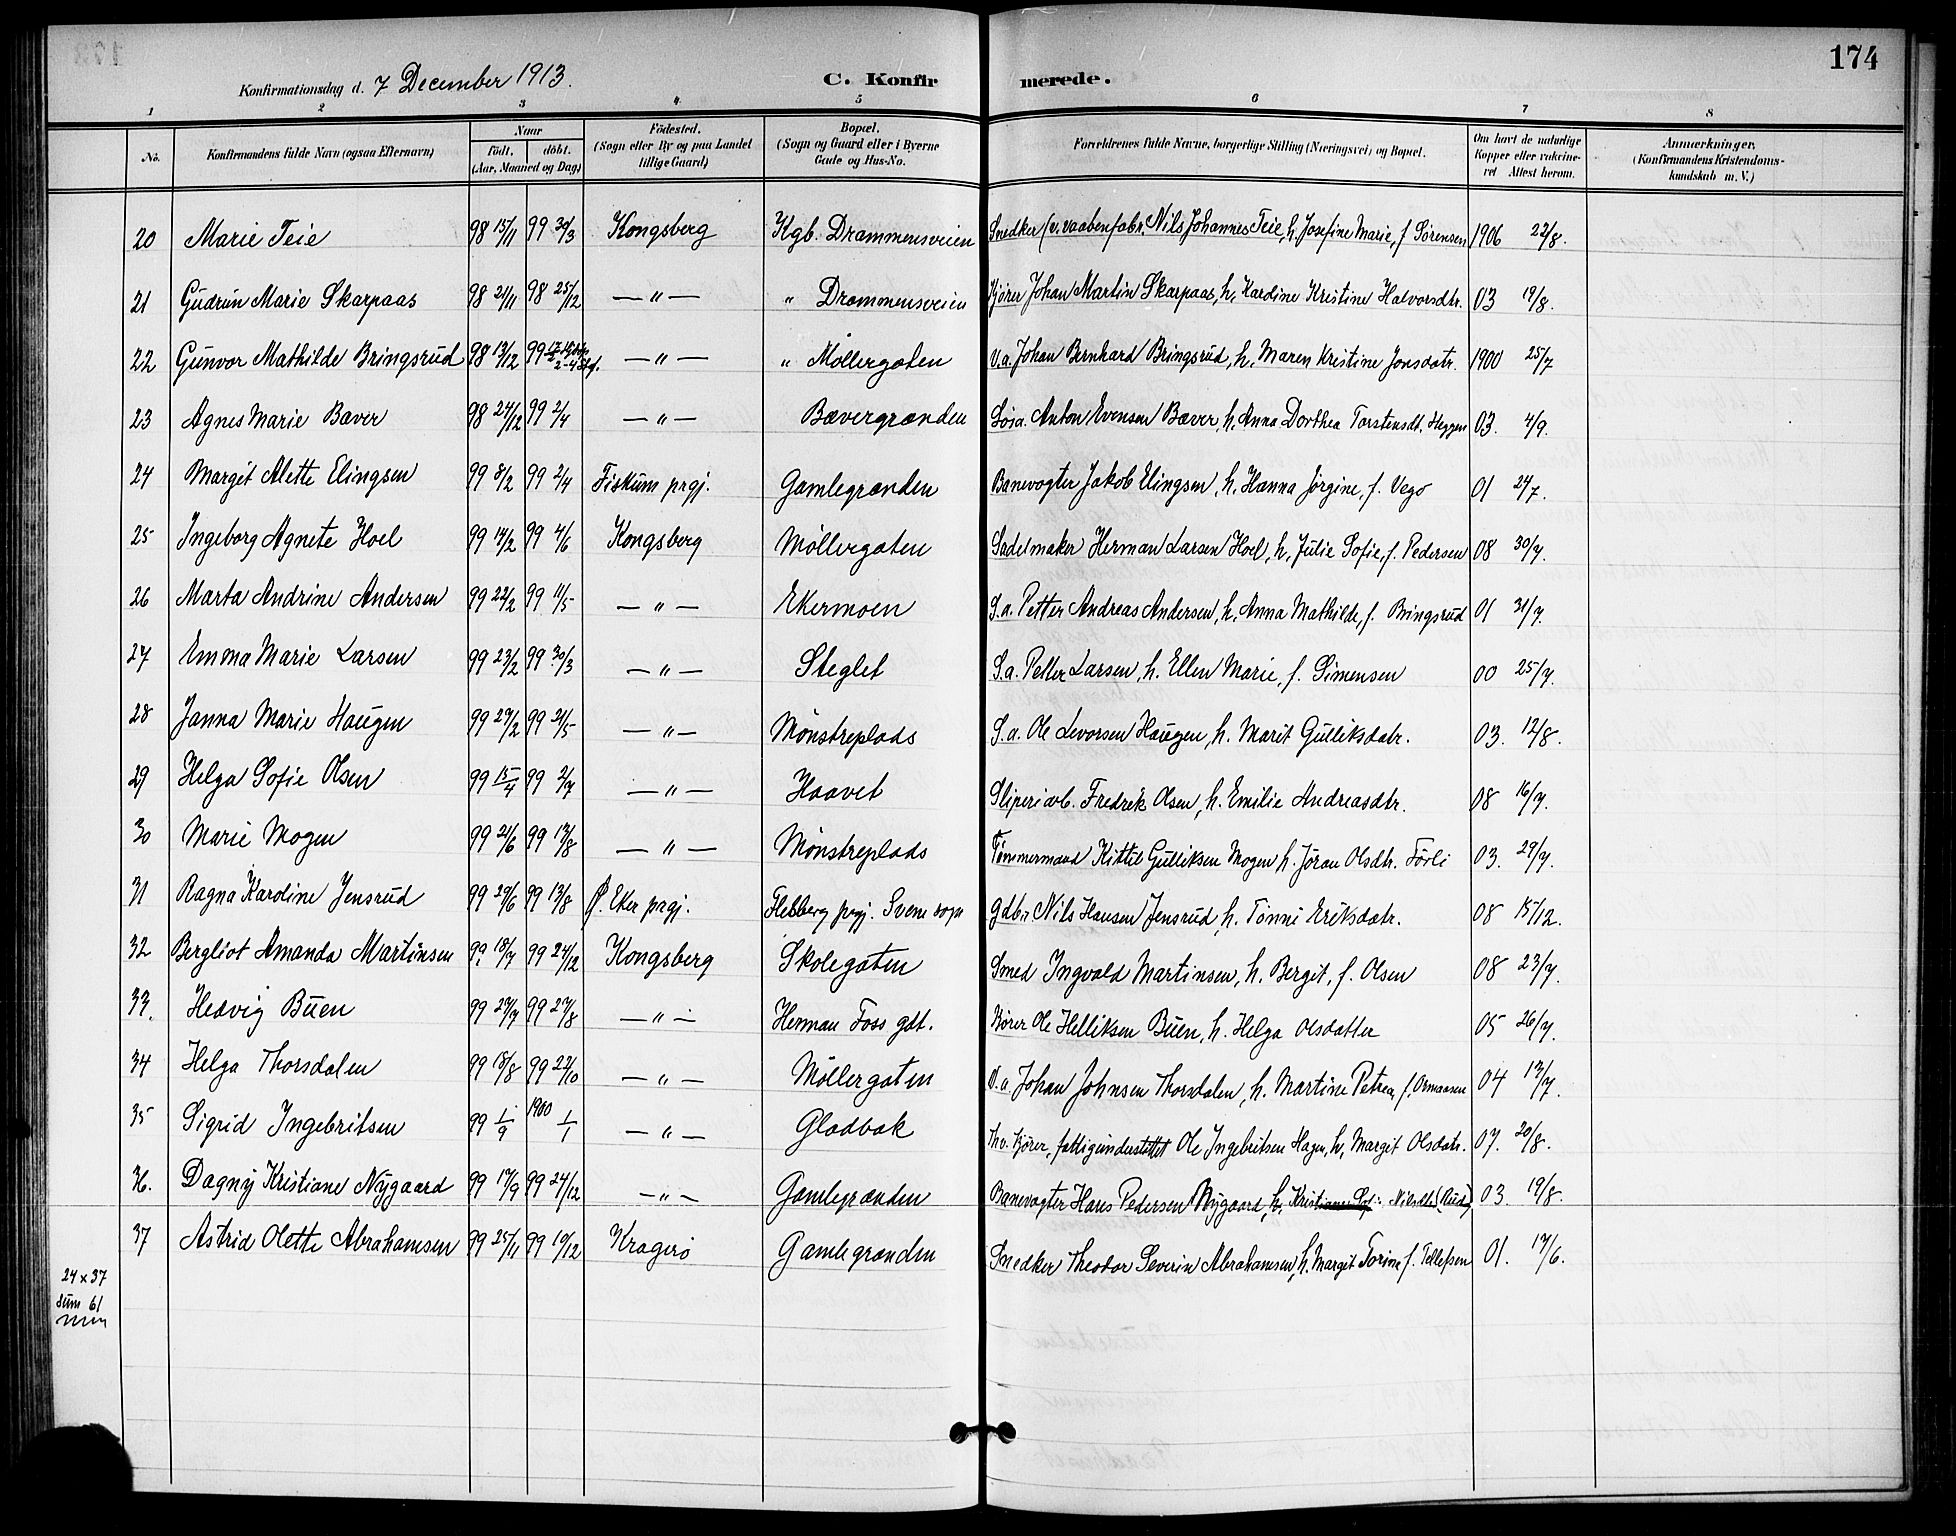 174
Konfirmationsdag d. 7 December 1913.
C. Konfirmerede.
1 2 3 4 5 6 7 8
No.
Konfirmandens fulde Navn (ogsaa Efternavn)
Naar
født, døbt.
(Aar, Maaned og Dag)
Fødested.
(Sogn eller By og paa Landet
tillige Gaard)
Bopæl.
(Sogn og Gaard eller i Byerne
Gade og Hus-No.
Forældrenes fulde Navne, borgerlige Stilling (Næringsvei) og Bopæl.
Om havt de naturlige
Kopper eller vakcine-
ret Attest herom.
Anmærkninger.
(Konfirmandens Kristendoms-
kundskab m. V.)
20 Marie Teie 98 15/11 99 30/3 Kongsberg Kgb. Drammensveien Snedker (v. vaabenfabr. Nils Johannes Teie, h. Josefine Marie, f. Sørensen 1906 22/8.
21 Gudrun Marie Skarpaas 98 21/11 98 25/12 — " — " Drammensveien Kjører Johan Martin Skarpaas, h. Kardine Kristine Halvorsdtr. 03 19/8.
22 Gunvor Mathilde Bringsrud 98 13/12 99 — " — " Møllergaten V.a. Johan Bernhard Bringsrud, h. Maren Kristine Jonsdatr. 1900 25/7
23 Agnes Marie Bæver 98 24/12 99 2/4 — " — Bævergrænden Løsa. Anton Evensen Bæver, h. Anna Dorthea Torstensdt. Heggen 03. 4/9.
24 Margit Alette Elingsen 99 8/2 99 2/4 Fiskum prgj. Gamlegrænden Banevogter Jakob Elingsen, h. Hanna Jørgine, f. Vego 01 24/7.
25 Ingeborg Agnete Hoel 99 14/2 99 4/6 Kongsberg Møllergaten Sadelmaker Herman Larsen Hoel, h. Julie Sofie, f. Pedersen 08 30/7.
26 Marta Andrine Andersen 99 22/2 99 11/5 — " — Ekermoen S.a. Petter Andreas Andersen, h. Anna Mathilde, f. Bringsrud 01 31/7.
27 Emma Marie Larsen 99 23/2 99 30/3 — " — Steglet S.a. Petter Larsen, h. Ellen Marie, f. Simensen 00 25/7.
28 Janna Marie Haugen 99 27/2 99 21/5 — " — Mønstreplads S.a. Ole Levorsen Haugen, h. Marit Gulliksdatr. 03. 12/8.
29 Helga Sofie Olsen 99 15/4 99 2/7 — " — Haavet Sliperiarb. Fredrik Olsen, h. Emilie Andreasdtr. 08 16/7.
30 Marie Mogen 99 21/6 99 13/8 — " — Mønstreplads Tømmermand Kittil Gulliksen Mogen h. Jøran Olsdtr. Førli 03. 29/7.
31 Ragna Karoline Jensrud 99 29/6 99 13/8 Ø. Eker prgj. Flesberg prgj. Svene sogn Gdbr. Nils Hansen Jensrud, h. Tønni Eriksdatr. 08 15/12.
32 Bergliot Amanda Martinsen 99. 18/7 99 24/12 Kongsberg Skolegaten Smed Ingvald Martinsen, h. Bergit, f. Olsen 08 23/7.
33. Hedvig Buen 99 27/7 99 27/8 — " — Herman Foss gdt. Kjører Ole Helliksen Buen, h. Helga Olsdatter 05 26/7.
34 Helga Thorsdalen 99 18/8 99 22/10 — " — Møllergaten V.a. Johan Johnsen Thorsdalen, h. Martine Petrea, f. 04 13/7.
35 Sigrid Ingebritsen 99 1/9 1900 1/1 — " — Gladbak Thv. Kjører, fattigunderstøttet Ole Ingebritsen Hagen, h. Margit Olsdatr. 07. 20/8.
36. Dagny Kristiane Nygaard 99 17/9 99 24/12 — " — Gamlegrænden Banevogter Hans Pedersen Nygaard, h. Kristiane Nilsdtr. (Rud) 03. 19/8.
37 Astrid Olette Abrahamsen 99 25/11 99 10/12 Kragerø Gamlegrænden Snedker Theodor Severin Abrahamsen, h. Margit Torine f. Tellefsen 01. 17/6.
24 x 37
Sum 61